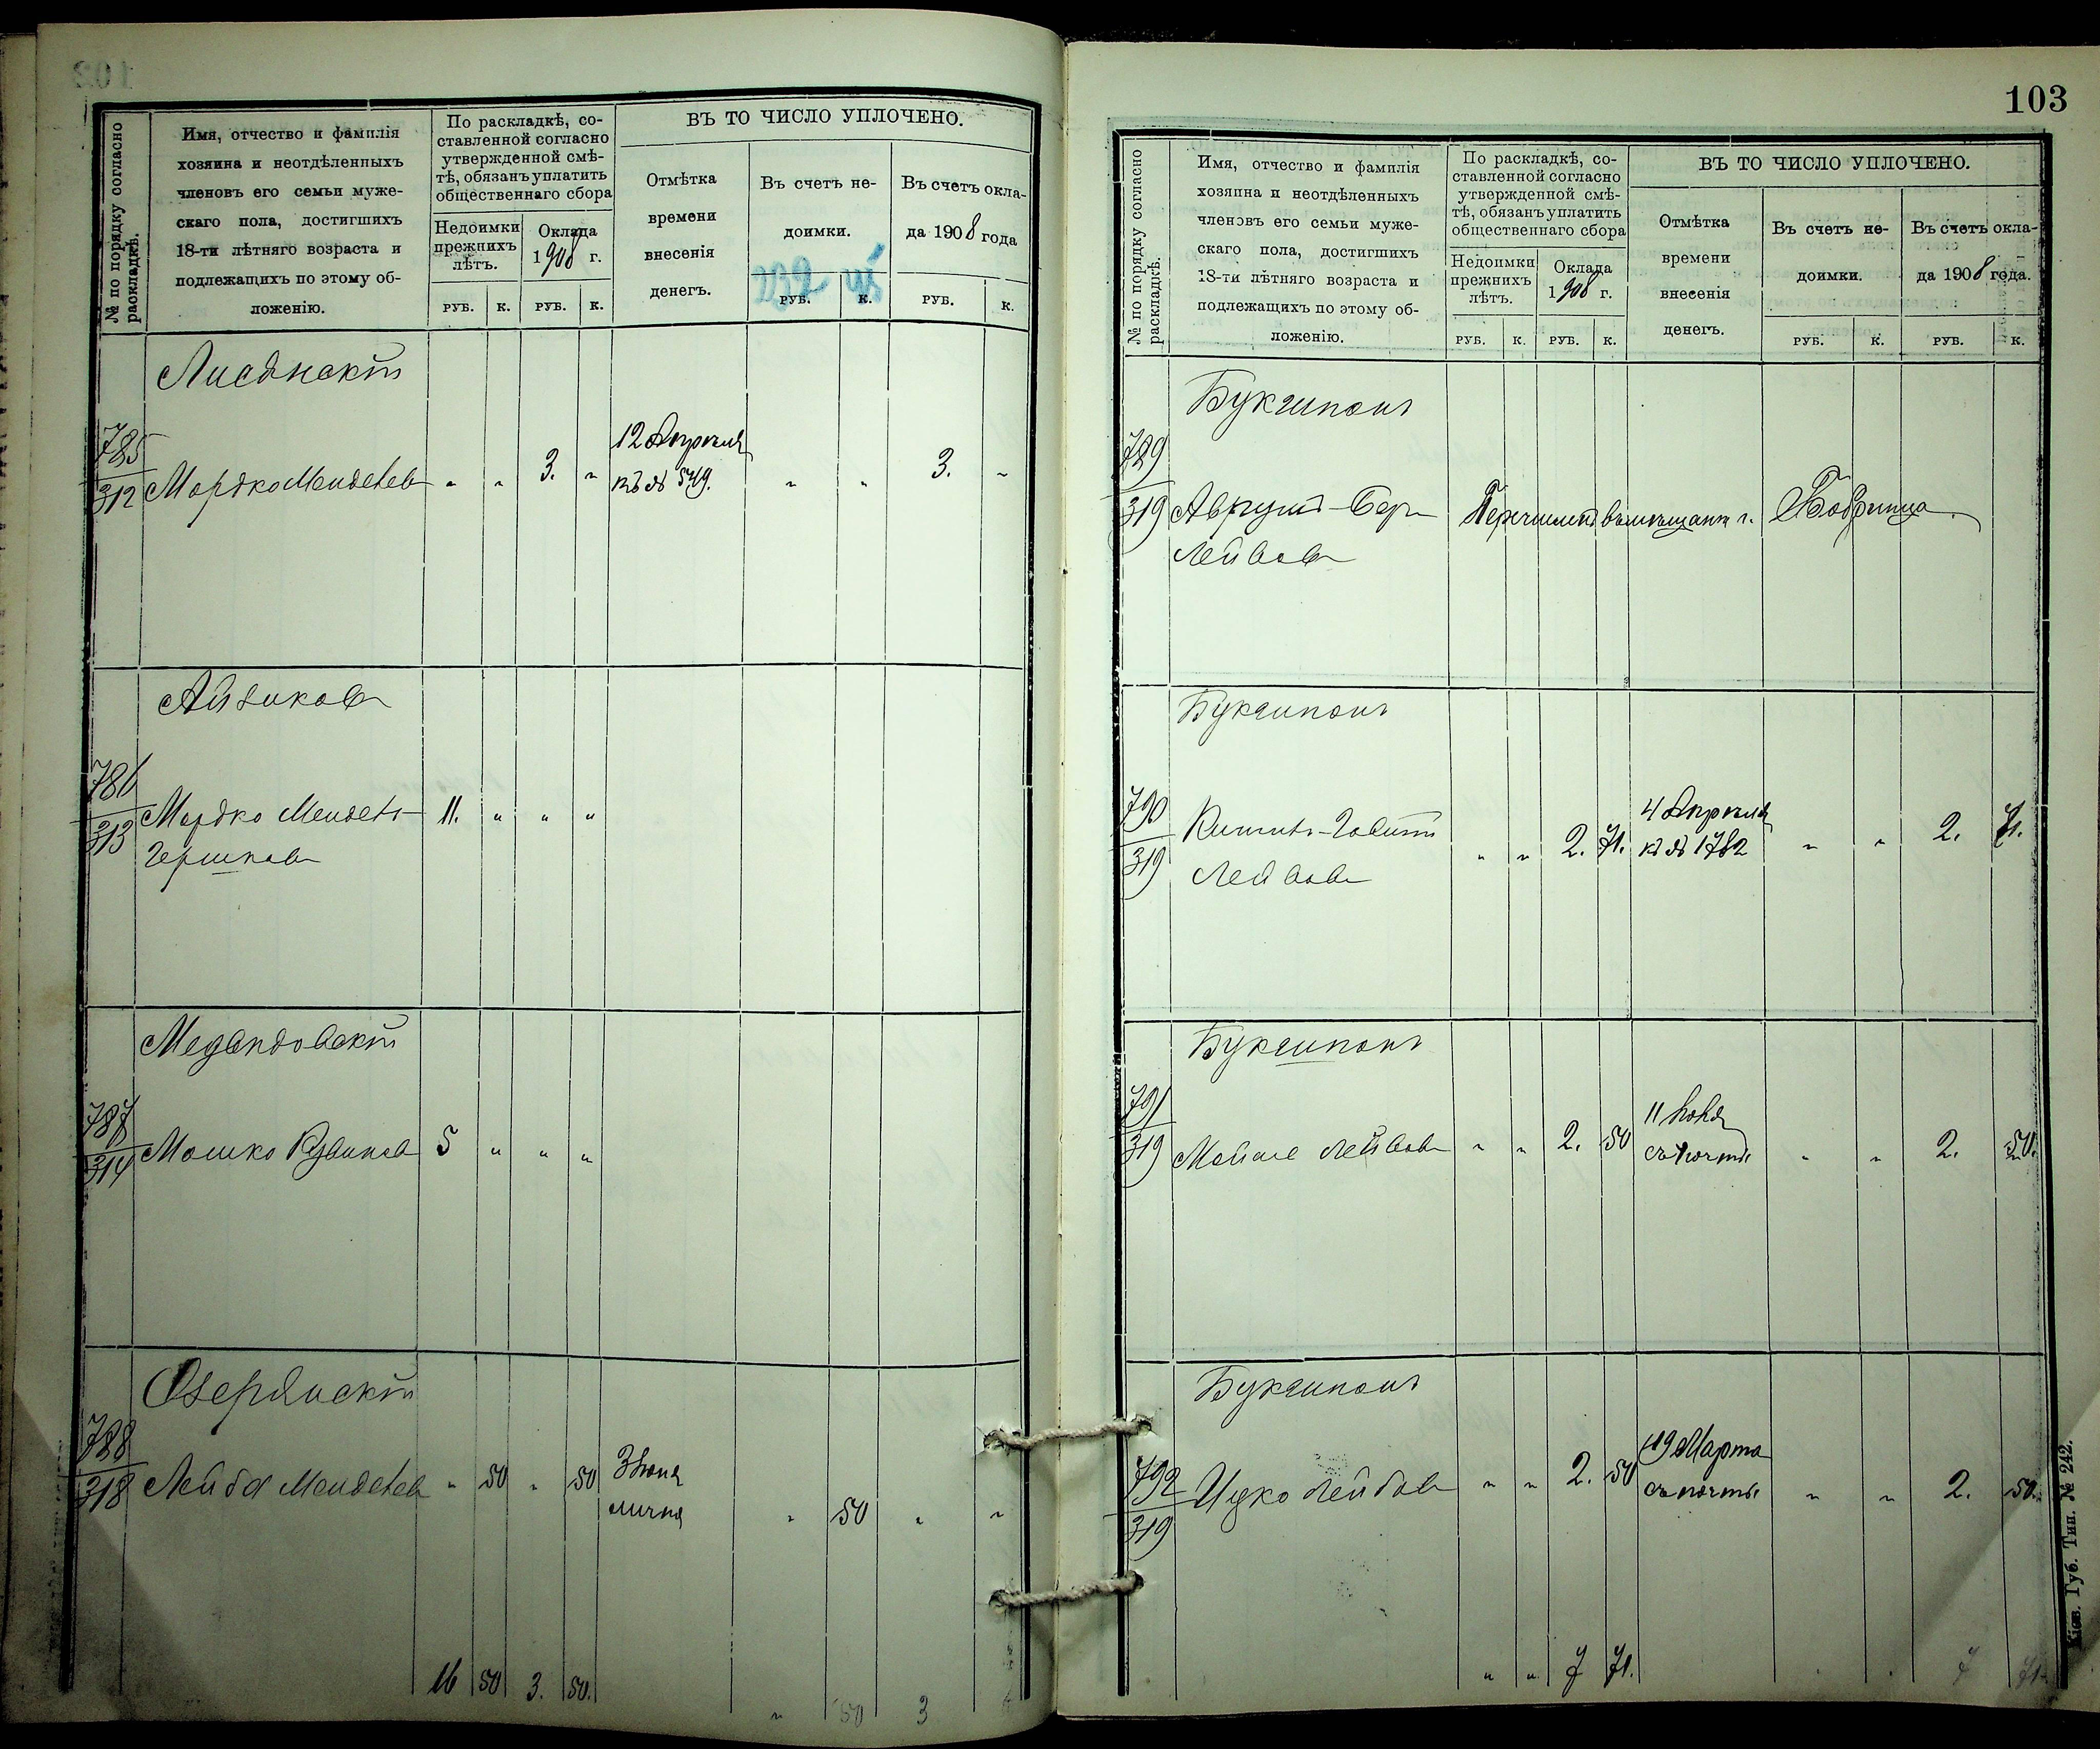 № по порядку согласно
раскладкѣ.
Имя, отчество и фамилія
хозяина и неотдѣленныхъ
членовъ его семьи муже-
скаго пола, достигшихъ
18-ти лѣтняго возраста и
подлежащихъ по этому об-
ложенію.
По раскладкѣ, со-
ставленной согласно
утвержденной смѣ-
тѣ, обязанъ уплатить
общественнаго сбора
Недоимки
прежнихъ
лѣтъ.
Оклада
1908 г.
РУБ. К. РУБ. К.
ВЪ ТО ЧИСЛО УПЛОЧЕНО.
Отмѣтка
времени
внесенія
денегъ.
Въ счетъ не-
доимки.
РУБ. К.
Въ счетъ окла-
да 1908 года
РУБ. К.
Лисянскій
785
312
Мордко Менделев
" " 3. "
12 Апрѣля
къ № 549.
" " 3. "
Айзиков
786
313
Мордко Мендель
Гершков
11. " " "
787
314
Мошко
5 " " "
Озерянскій
788
318
Лейба Менделев
" 50 " 50
3 Іюня
лично
" 50 " "
16 50 3. 50.
" 50 3
103
№ по порядку согласно
раскладкѣ.
Имя, отчество и фамилія
хозяина и неотдѣленныхъ
членовъ его семьи муже-
скаго пола, достигшихъ
18-ти лѣтняго возраста и
подлежащихъ по этому об-
ложенію.
По раскладкѣ, со-
ставленной согласно
утвержденной смѣ-
тѣ, обязанъ уплатить
общественнаго сбора
Недоимки
прежнихъ
лѣтъ.
Оклада
1908 г.
РУБ. К. РУБ. К.
ВЪ ТО ЧИСЛО УПЛОЧЕНО.
Отмѣтка
времени
внесенія
денегъ.
Въ счетъ не-
доимки.
РУБ. К.
Въ счетъ окла-
да 1908 года.
РУБ. К.
Букшпонъ
789
319
Аврумъ-Бер
Лейбов
Перечисленъ въ мѣщане г. Бобринца
Букшпонъ
790
319
Лейбов
" " 2. 71.
4 Апрѣля
къ № 1782
" " 2. 71.
Букшпонъ
791
319
Мойше Лейбов
" " 2. 50
11
съ почты
" " 2. 50.
Букшпонъ
792
319
Ицко Лейбов
" " 2. 50
19 Марта
съ почты
" " 2. 50.
" " 7 71.
7 71.
Кіев. Губ. Тип. № 242.